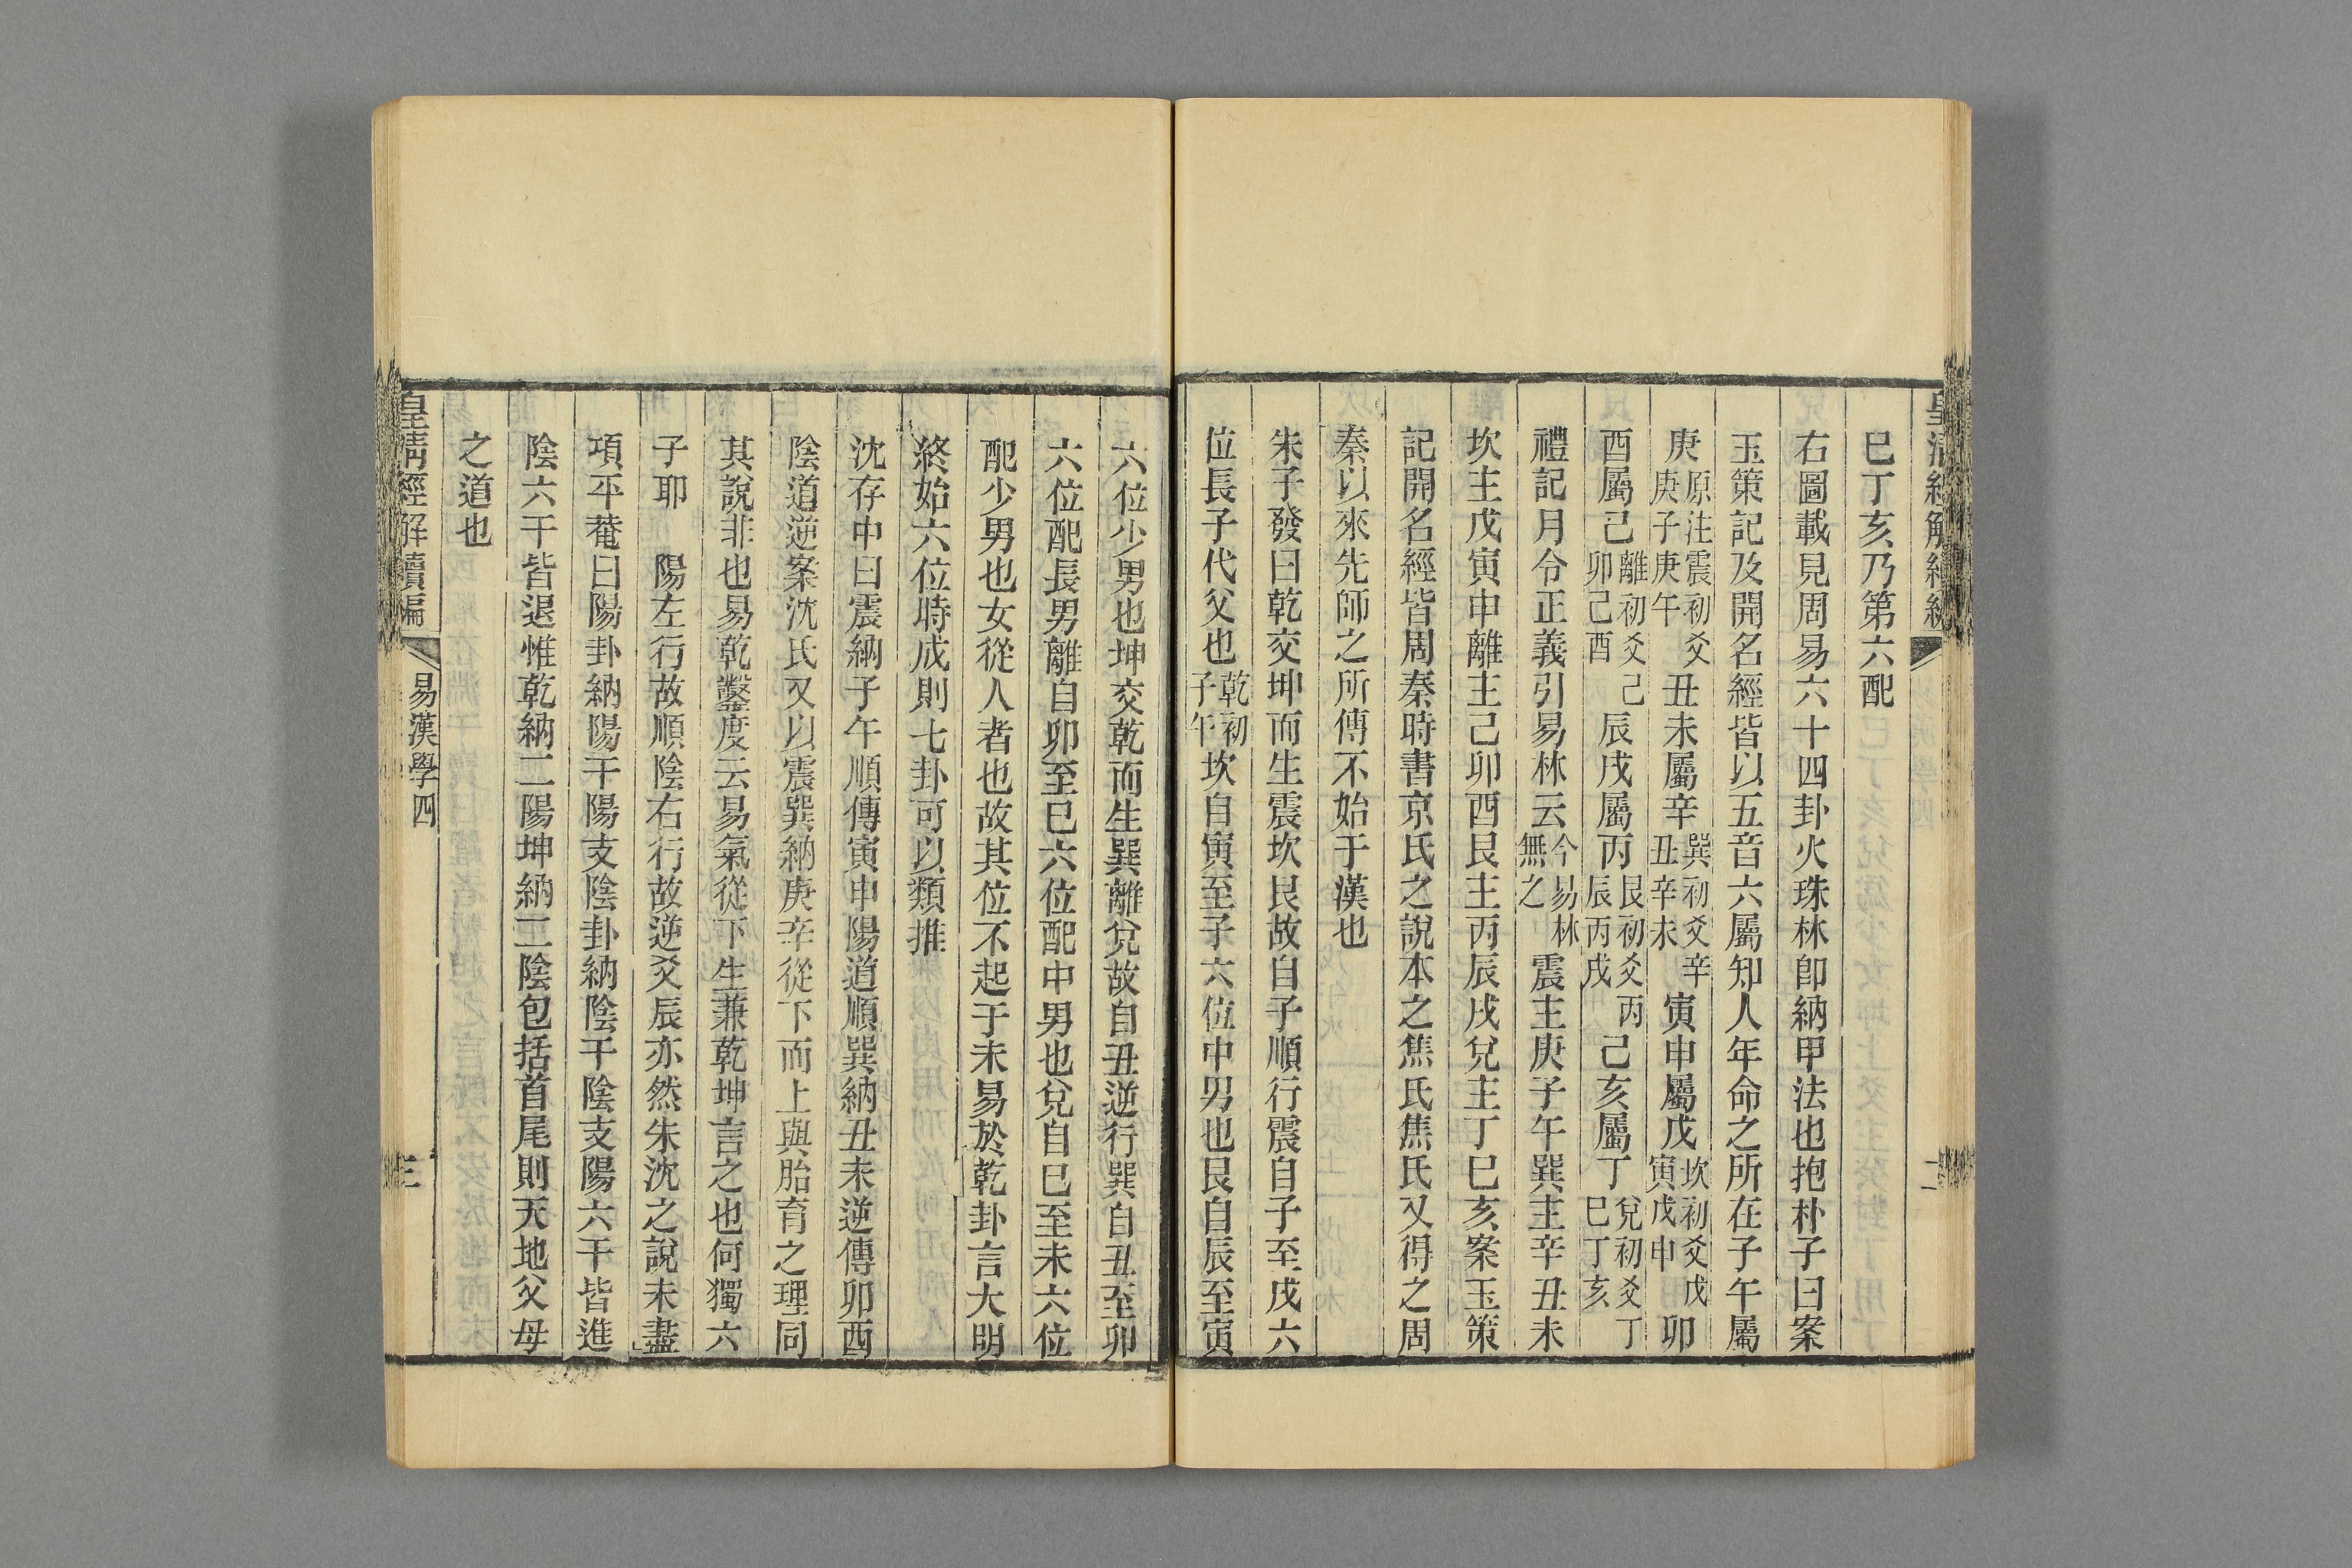 巳丁亥乃第六配
右圖載見周易六十四卦火珠林卽納甲法也抱朴子曰案
玉策記及開名經皆以五音六屬知人年命之所在子午屬
庚原注震初爻庚子庚午丑未屬辛巽初爻辛丑辛未寅申屬戊坎初爻戊寅戊申卯
酉屬己離初爻己卯己酉辰戌屬丙艮初爻丙辰丙戌己亥屬丁兌初爻丁巳丁亥
禮記月令正義引易林云今易林無之震主庚子午巽主辛丑未
坎主戊寅申離主己卯酉艮主丙辰戌兌主丁巳亥案玉策
記開名經皆周秦時書京氏之說本之焦氏焦氏又得之周
秦以來先師之所傳不始于漢也
朱子發曰乾交坤而生震坎艮故自子順行震自子至戌六
位長子代父也乾初子午坎自寅至子六位中男也艮自辰至寅
六位少男也坤交乾而生巽離兌故自丑逆行巽自丑至卯
六位配長男離自卯至巳六位配中男也兌自巳至未六位
配少男也女從人者也故其位不起于未易於乾卦言大明
終始六位時成則七卦可以類推
沈存中曰震納子午順傳寅申陽道順巽納丑未逆傳卯酉
陰道逆案沈氏又以震巽納庚辛從下而上與胎育之理同
其說非也易乾鑿度云易氣從下生兼乾坤言之也何獨六
子耶　陽左行故順陰右行故逆爻辰亦然朱沈之說未盡
項平菴曰陽卦納陽干陽支陰卦納陰干陰支陽六干皆進
陰六干皆退惟乾納二陽坤納二陰包括首尾則天地父母
之道也
皇清經解續編
易漢學四
三